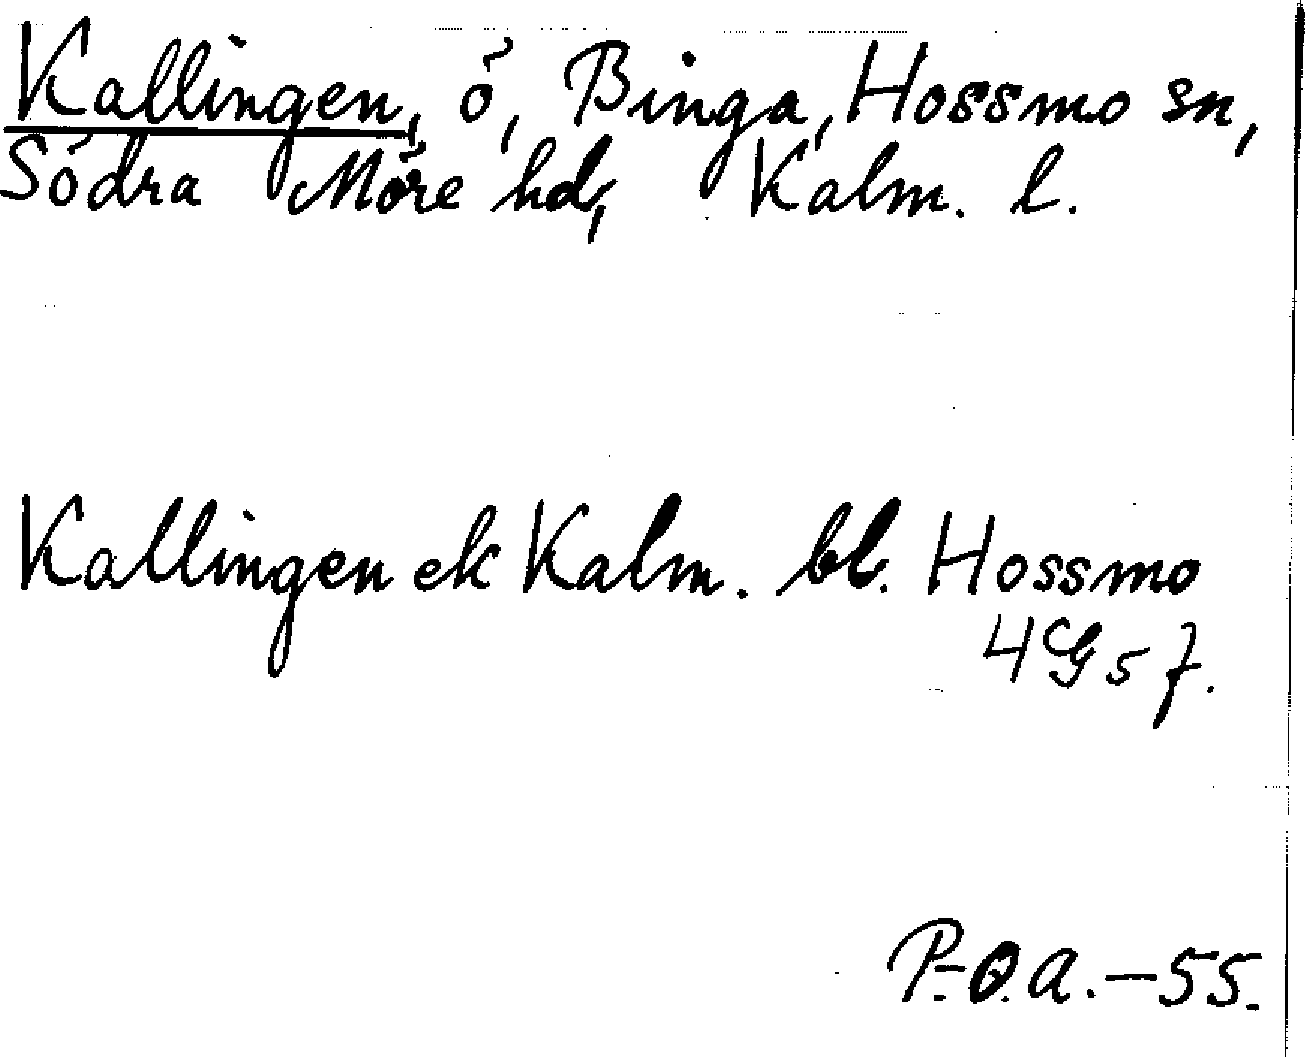 Kallingen, ö, Binga, Hossmo sn,
Södra Möre hd, Kalm. l.
Kallingen ek Kalm. bl. Hossmo
4G 5 f.
P.-O.A.-55.